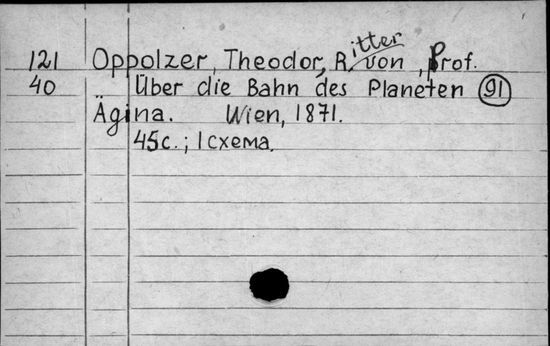 121 Oppolzer, Theodor, Ritter von, Prof.
40 Über die Bahn des Planeten (91)
Ägina. Wien, 1871.
45с.; 1 схема.